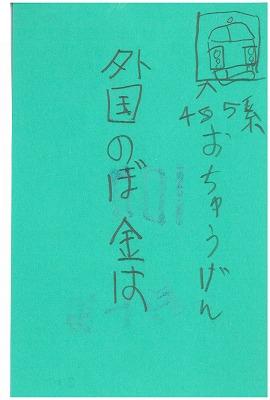 485系
おちゅうげん
外国のぼ金は